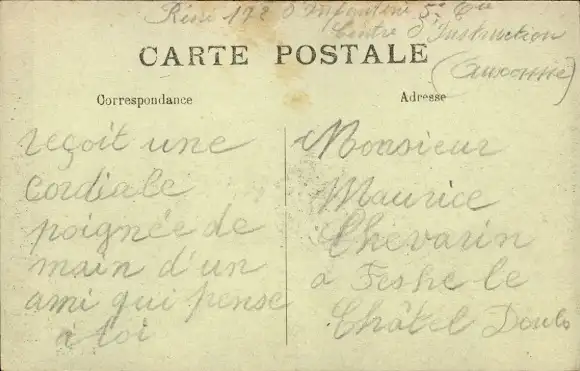 Réné 172 d'Infanterie 5e Cie
Centre d'Instruction
(Auxonne)
CARTE POSTALE
Correspondance
Adresse
reçoit une
cordiale
poignée de
main d'un
ami qui pense
à toi
Monsieur
Maurice
Chevarin
a Feshe le
Châtel Doubs